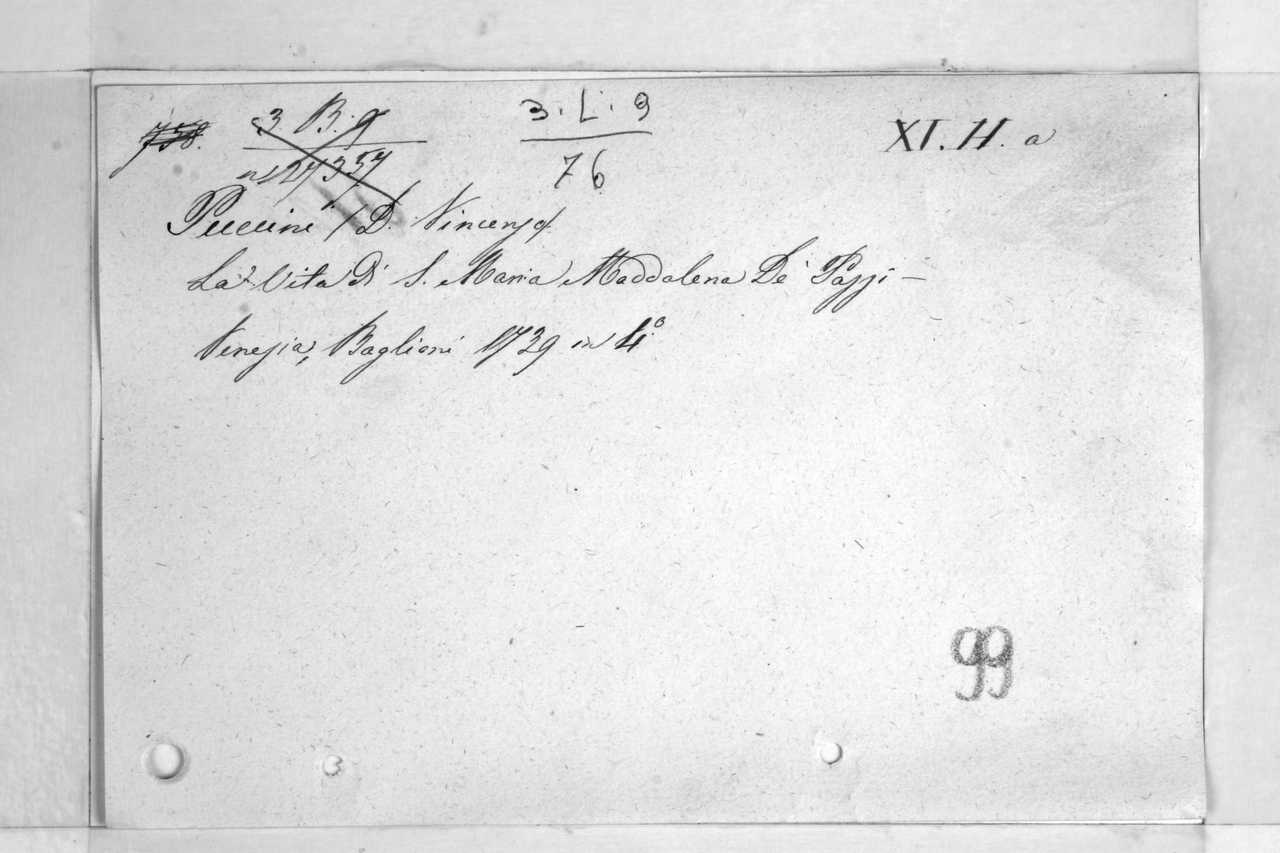 758. 3. B. 9 3. L. 9 XI. H. a
76
Puccini /D. Vincenzo/
La Vita di S. Maria Maddalena De' Pazzi -
Venezia, Baglioni 1739 in 4°
99